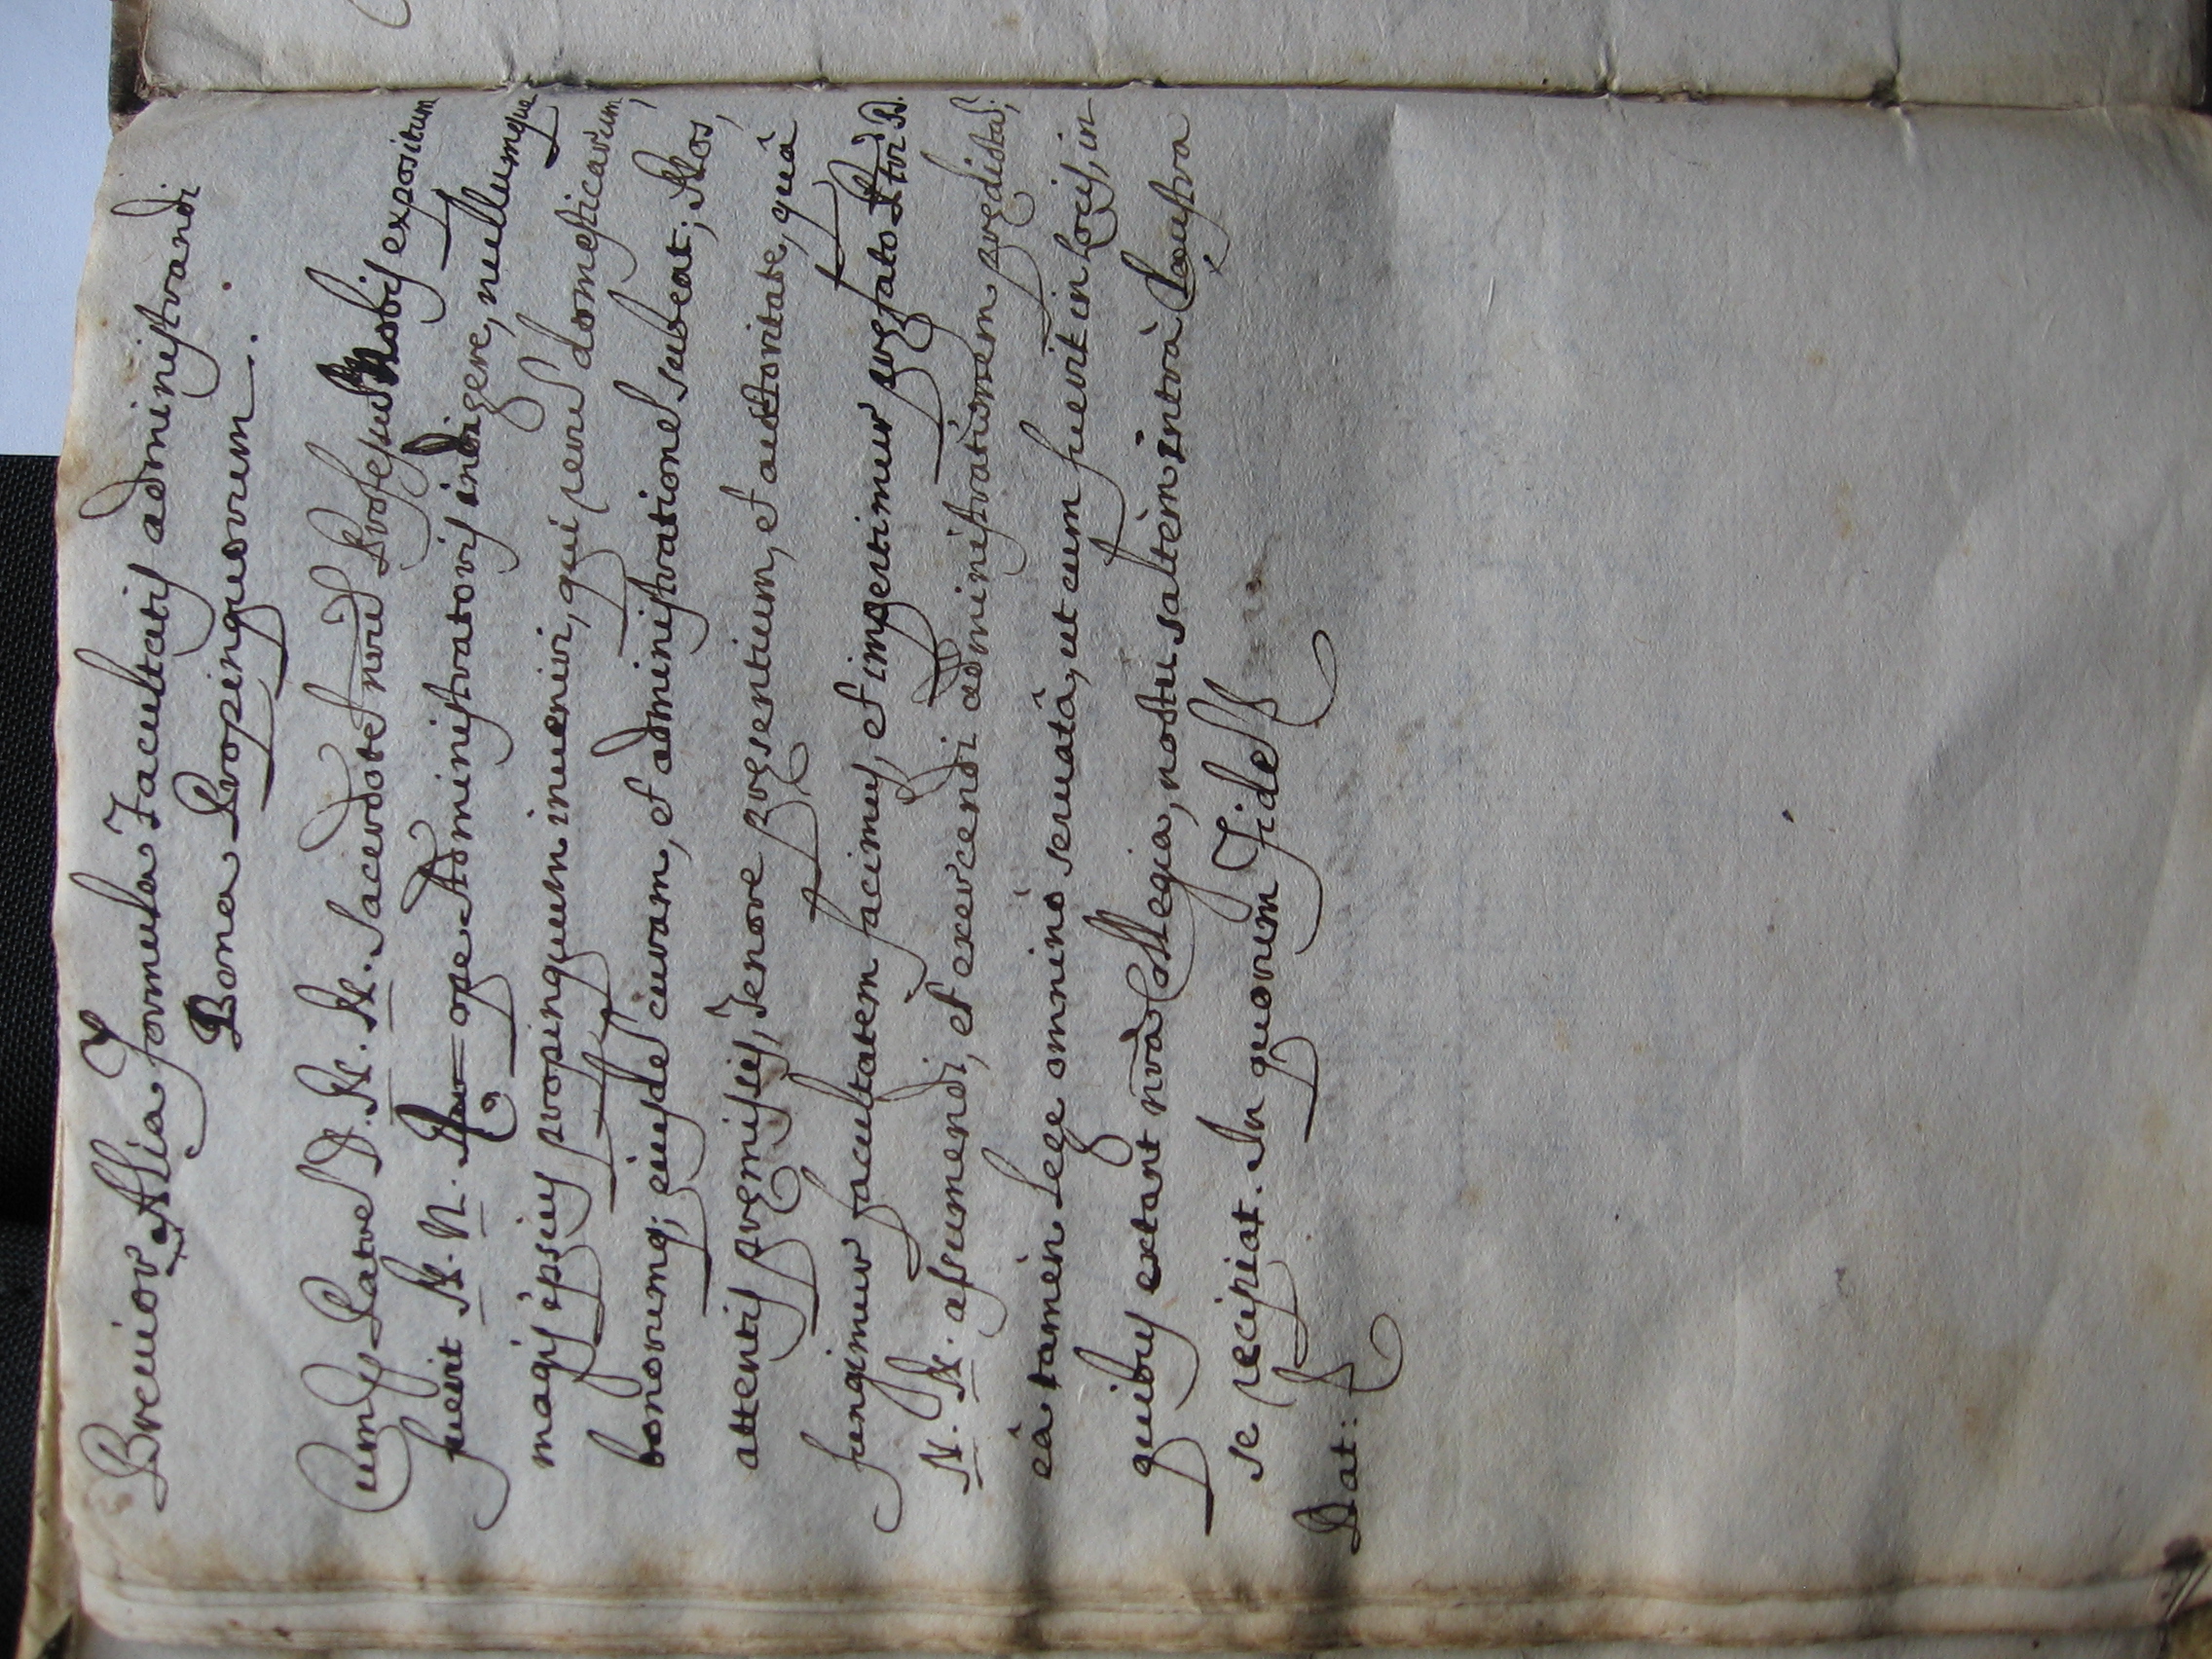 Breuior Alia Formula Facultatis administrandi
Bona Propinquorum.
Cum Patre D. N. N. Sacerdote nrõ Professo Nobis expositum
fuerit N. N. ope Administratoris indigere, nullumque
magis ipsius propinquum inueniri, qui rerum domesticarum,
bonorumq; eiusdẽ curam, et administrationẽ subeat; Nos,
attentis præmissis, Tenore præsentium, et auctoritate, quâ
fungimur facultatem facimus, et impertimur præfato Pri D.
N. N. assumendi, et exercendi administrationem prædictã;
eâ tamen Lege omninò seruatâ, ut cum fuerit in Locis, in
quibus extant nrã Collegia, noctu saltèm intrà Claustra
se recipiat. In quorum Fidem
Dat: